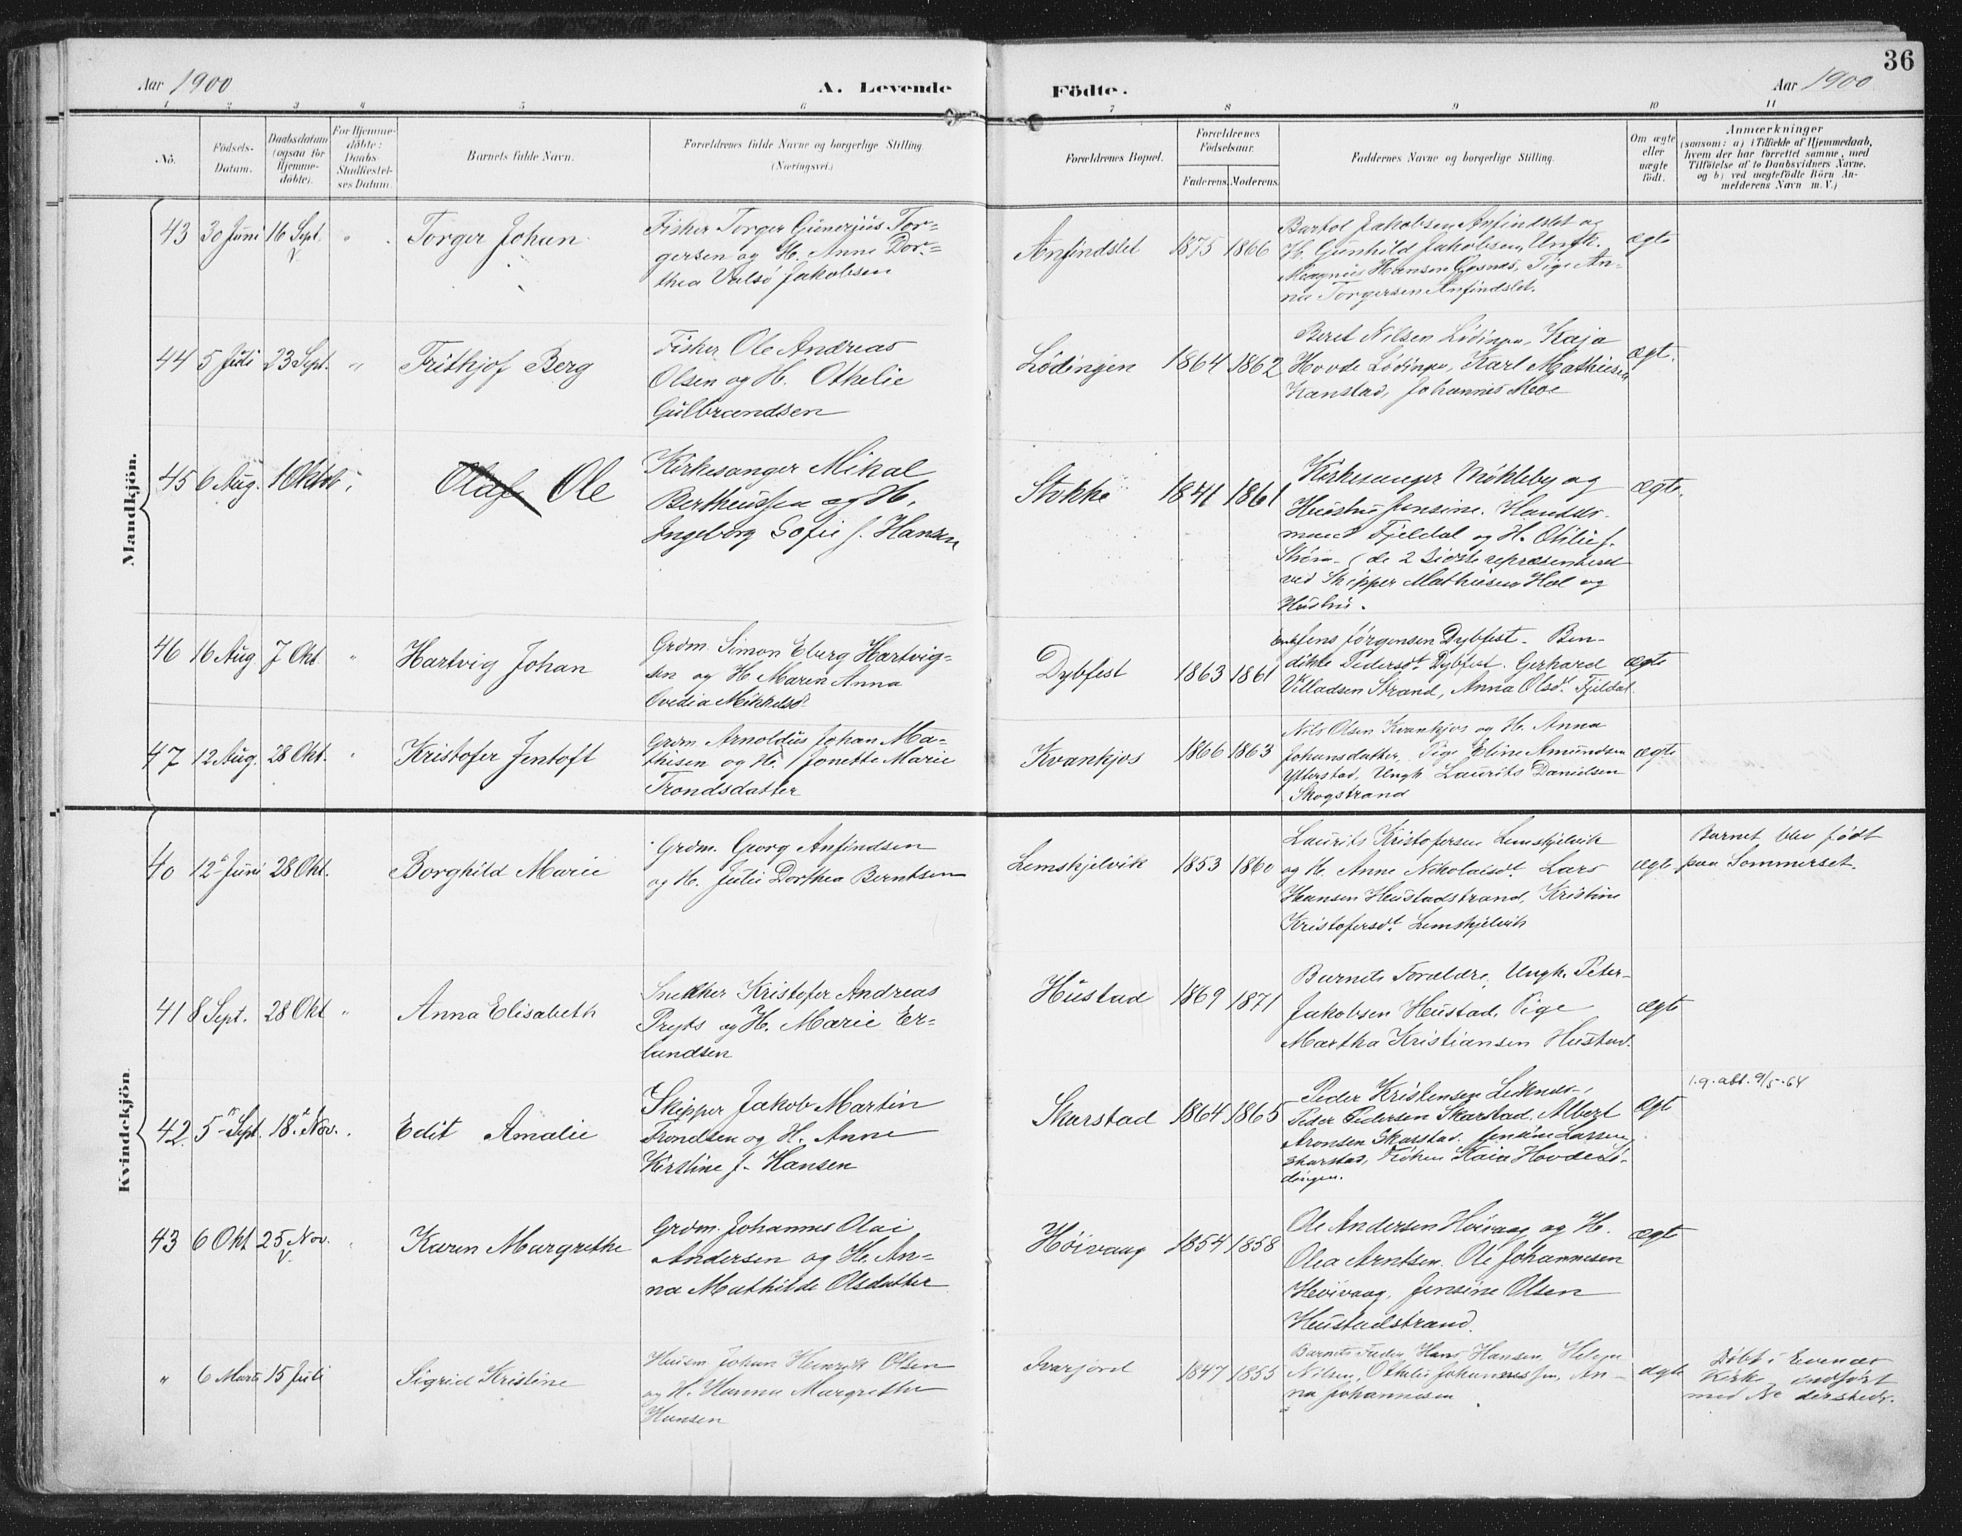 36
Aar 1900
A. Levende
Födte.
Aar 1900
1 2 3 4 5 6 7 8 9 10 11
No.
Födsels-
Datum.
Daabsdatum
(ogsaa for
Hjemme-
döbte).
For Hjemme-
döbte:
Daabs-
Stadfæstel-
ses Datum.
Barnets fulde Navn.
Forældrenes fulde Navne og borgerlige Stilling
(Næringsvei.)
Forældrenes Bopæl.
Forældrenes
Födselsaar.
Faderens. Moderens.
Faddernes Navne og borgerlige Stilling.
Om ægte
eller
uægte
födt.
Anmærkninger
(saasom: a) i Tilfælde af Hjemmedaab,
hvem der har forrettet samme, med
Tilföielse af to Daabsvidners Navne,
og b) ved uægtefödte Börn An-
melderens Navn m. V.)
Mandkjön.
43 30 Juni 16 Sept. " Torger Johan
Fisker Torger Gunerius Tor-
gersen og H. Anne Dor-
thea Valsö Jakobsen
Anfindslet 1875 1866
Bartol Jakobsen Anfindslet og
H. Gunhild Jakobsen, Ungk.
Magnus Hansen Gosnes, Pige An-
na Torgersen Anfindslet.
ægte
44 5 Juli 23 Sept. " Frithjof Berg
Fisker Ole Andreas
Olsen og H. Othelie
Gulbrandsen
Lödingen 1864 1862
Beret Nilsen Lödingen, Kaja
Hovde Lödingen, Karl Mathiesen
Kanstad, Johannes Moe
ægt.
45 6 Aug. 1 Oktob. " Olaf Ole
Kirkesanger Mikal
Bertheussen og H.
Ingeborg Sofie f. Hansen
Stokke 1841 1861
Kirkesanger Mökleby og
Hustru Jensine. Handels-
mand Fjeldal og H. Otilie f.
Ström - (de 2 sidste repræsenteret
ved Skipper Mathiesen Hol og
Hustru.
ægte.
46 16 Aug 7 Okt " Hartvig Johan
Grdm. Simon Eberg Hartvig-
sen og H. Maren Anna
Ovedia Mikkelsd.
Dybfest 1863 1861
Jens Jörgensen Dybfest. Ben-
dikke Pedersdt. Dybfest. Gerhard
Villadsen Strand, Anna Olsdt. Fjeldal.
ægte
47 12 Aug. 28 Okt. " Kristofer Jentoft
Grdm. Arnoldus Johan Ma-
thisen og H. Jonette Marie
Trondsdatter
Kvankjos 1866 1863
Nils Olsen Kvankjos og H. Anna
Johansdatter. Pige Eline Amundsen
Ytterstad, Ungk. Laurits Danielsen
Skogstrand
ægte
Kvindekjön.
40 12te Juni 28 Okt. Borghild Marie
Grdm. Georg Anfindsen
og H. Julie Dorthea Berntsen
Lemskjelvik 1853 1860
Laurits Kristofersen Lemskjelvik
og H. Anne Nikolaisdt. Lars
Hansen Hustadstrand, Kristine
Kristofersdt. Lemskjelvik
ægte
Barnet blev födt
paa Sommerset.
41 8 Sept. 28 Okt " Anna Elisabeth
Snekker Kristofer Andreas
Pryts og H. Marie Er-
landsen
Hustad 1869 1871
Barnets Forældre, Ungk. Peter
Jakobsen Hustad, Pige
Martha Kristiansen Hustad.
ægte
42. 5te Sept. 18de Nov. Edit Amalie
Skipper Jakob Martin
Trondsen og H. Anne
Kirstine f. Hansen
Skarstad 1864 1865
Peder Kristensen
Peder Pedersen Skarstad, Albert
Aronsen Skarstad. Jensine Larsen
Skarstad, Fröken Kaia Hovde Lö-
dingen.
ægt
l.g. abt. 9/5-64
43 6 Okt 25 Nov. " Karen Margrethe
Grdm. Johannes Olai
Andersen og H. An-
na Mathilde Olsdatter
Höivaag 1854 1858
Ole Andersen Höivaag og H.
Olea Arntsen. Ole Johannesen
Höivaag, Jensine Olsen
Hustadstrand.
ægt
" 6 Marts 15 Juli Sigrid Kristine
Husm. Johan Heinrik Olsen
og H. Hanna Margrethe
Hansen
Ivarjord 1847 1855
Barnets Fader, Hans Hansen, Helene
Nilsen, Othelie Johannessen, An-
na Johannesen
ægte
Döbt i Evenæs
Kirke indfört
med No dersteds.